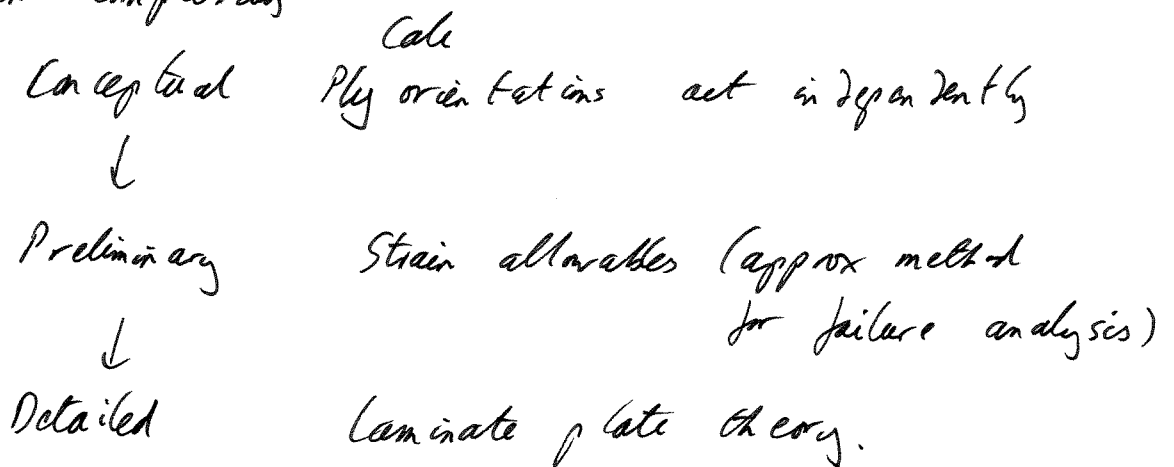 Calc
Conceptual Ply orientations act independently
↓
Preliminary Strain allowables (approx method
for failure analysis)
↓
Detailed Laminate plate theory.